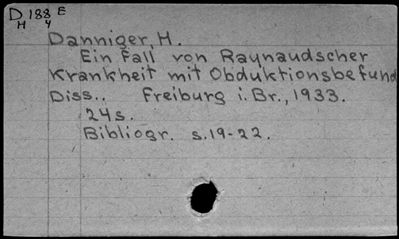 D 188 E
H 4
Danniger, H.
Ein Fall von Raynaudscher
Krankheit mit Obduktionsbefund
Diss.. Freiburg i. Br., 1933.
24s.
Bibliogr. s.19-22.